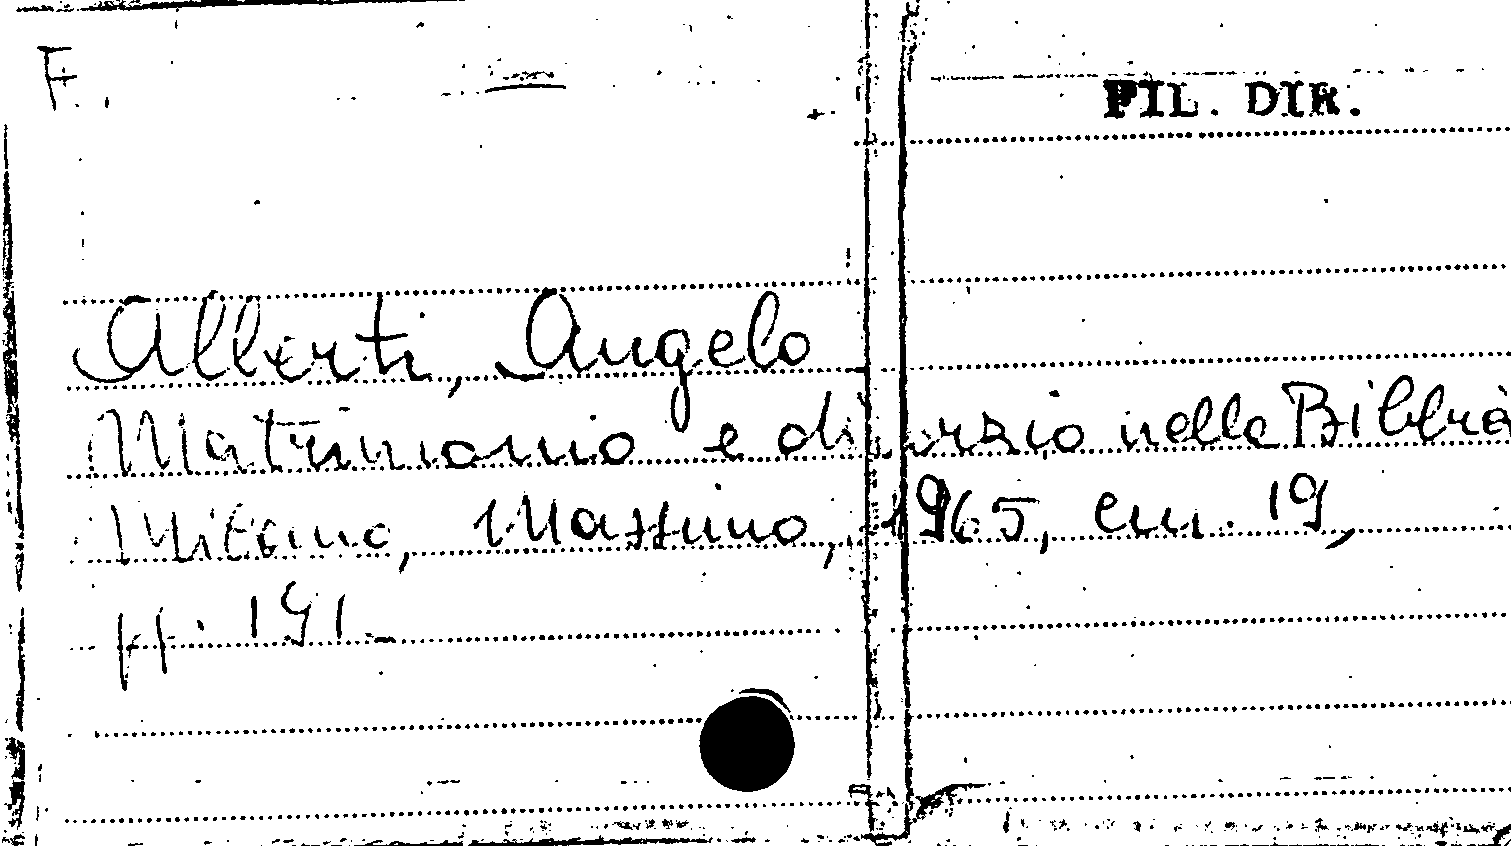 F.
FIL. DIR.
Alberti, Angelo
Matrimonio e divorzio nella Bibbia
Milano, Massimo, 1965, cm. 19,
pp. 191.